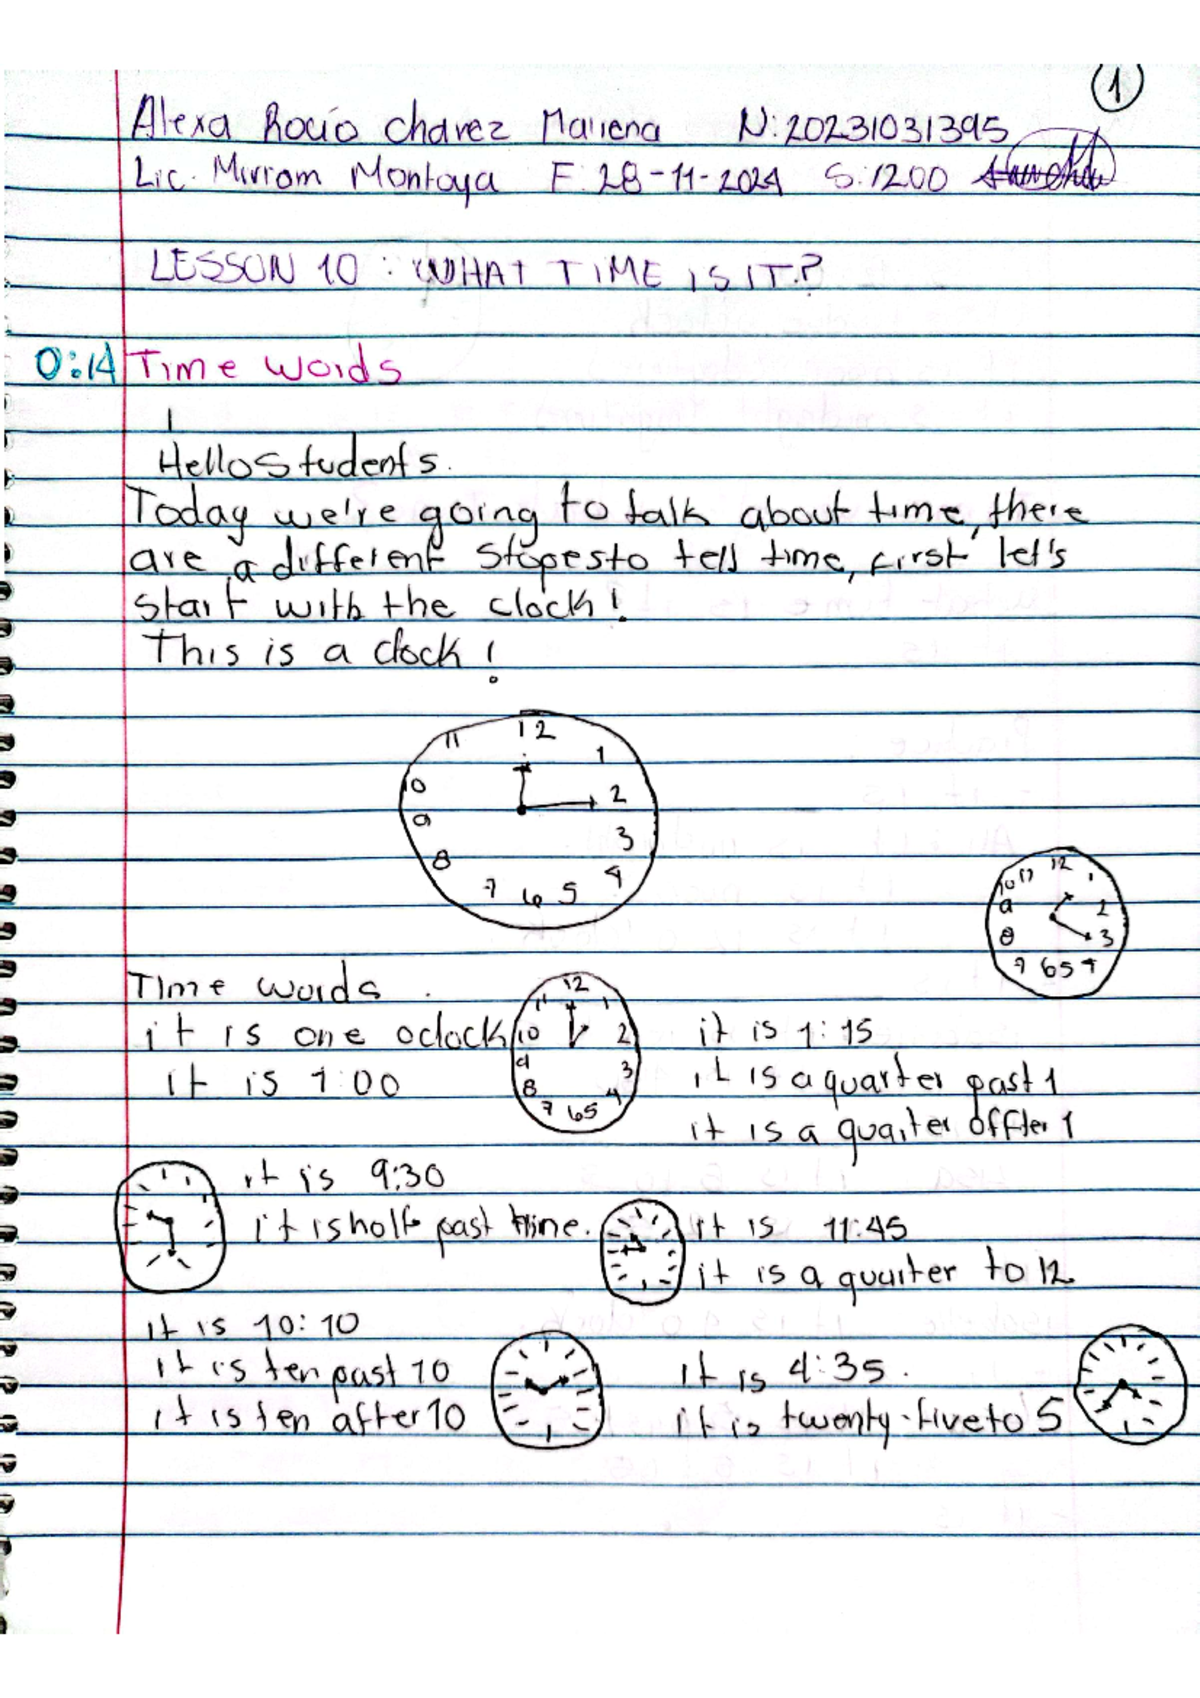 1
Alexa Rocío Chavez Mariena N: 20231031395
Lic. Mirrom Montoya F: 28-11-2024 S: 1200
LESSON 10 : WHAT TIME IS IT?
0:14 Time words
Hello Students.
Today we're going to talk about time, there
are a different Stopes to tell time, first let's
start with the clock!
This is a clock!
12
11 1
10 2
9 3
8 4
7 6 5
12
10 11 1
9 2
8 3
7 6 5 4
Time words.
it is one oclock
it is 1:00
12
11 1
10 2
9 3
8 4
7 6 5
it is 1:15
it is a quarter past 1
it is a quaiter offter 1
it is 9:30
it is holf past nine.
it is 11:45
it is a quaiter to 12
it is 10:10
it is ten past 10
it is ten after 10
it is 4:35.
it is twenty-five to 5